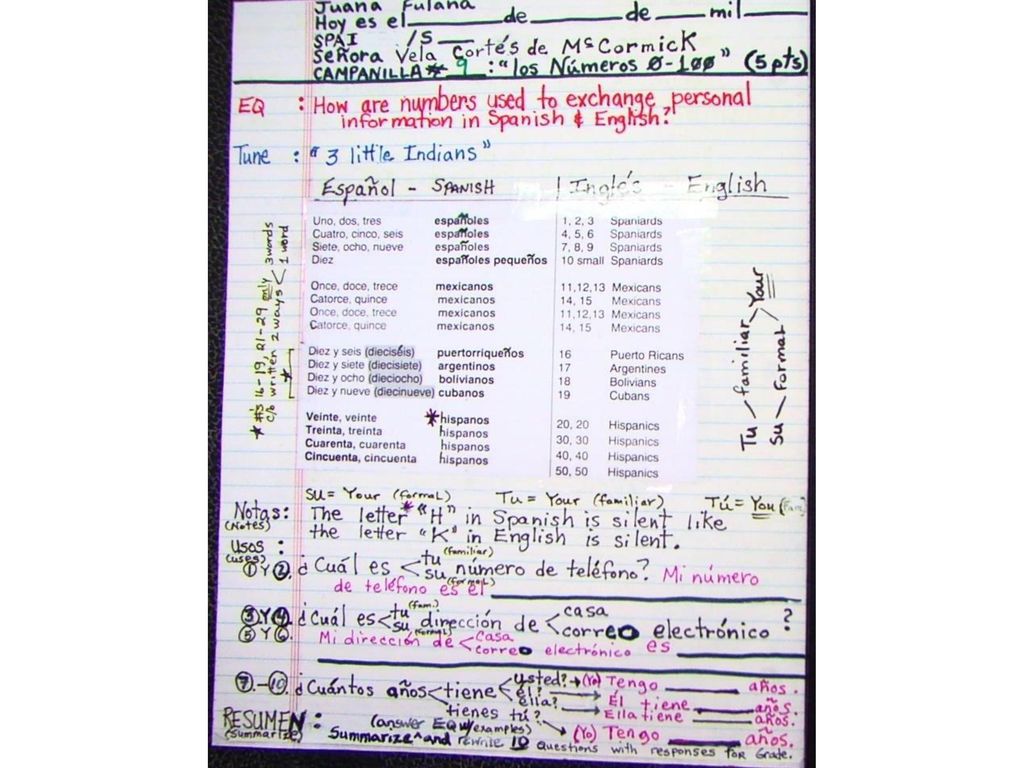 Juana Fulana
Hoy es el______de______de mil____
SPAI /S___
Señora Vela Cortés de McCormick
CAMPANILLA * 9 : "los Números 0-100" (5 pts)
EQ : How are numbers used to exchange personal
information in Spanish & English?
Tune : "3 little Indians"
Español - SPANISH | Inglés - English
Uno, dos, tres españoles 1, 2, 3 Spaniards
Cuatro, cinco, seis españoles 4, 5, 6 Spaniards
Siete, ocho, nueve españoles 7, 8, 9 Spaniards
Diez españoles pequeños 10 small Spaniards
Once, doce, trece mexicanos 11,12,13 Mexicans
Catorce, quince mexicanos 14, 15 Mexicans
Once, doce, trece mexicanos 11,12,13 Mexicans
Catorce, quince mexicanos 14, 15 Mexicans
Diez y seis (dieciséis) puertorriqueños 16 Puerto Ricans
Diez y siete (diecisiete) argentinos 17 Argentines
Diez y ocho (dieciocho) bolivianos 18 Bolivians
Diez y nueve (diecinueve) cubanos 19 Cubans
Veinte, veinte *hispanos 20, 20 Hispanics
Treinta, treinta hispanos 30, 30 Hispanics
Cuarenta, cuarenta hispanos 40, 40 Hispanics
Cincuenta, cincuenta hispanos 50, 50 Hispanics
* #'s 16-19, 21-29 only 3 words
c/b written 2 ways < 1 word
*
Tu - familiar > Your
Su - Formal
Su = Your (formal) Tu = Your (familiar) Tú = You (fam)
Notas: The letter *"H" in Spanish is silent like
(Notes) the letter "K" in English is silent.
Usos : (uses)
① Y ②. ¿Cuál es < tu (familiar) su (formal) número de teléfono? Mi número
de teléfono es el ______
③ Y ④. ¿Cuál es < tu (fam.) su (formal) dirección de < casa correo electrónico ?
⑤ Y ⑥. Mi dirección de < casa correo electrónico es ______
⑦.-⑩. ¿Cuántos años < tiene < usted? → (Yo) Tengo ______ años.
él? → Él tiene ______ años.
ella? → Ella tiene ______ años.
tienes tú? → (Yo) Tengo ______ años.
RESUMEN : (answer EQ w/examples)
(Summarize) Summarize ^ and rewrite 10 questions with responses for Grade.